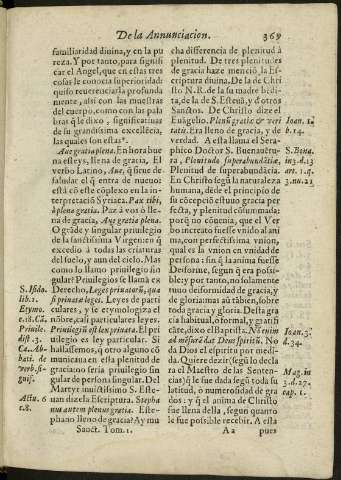 De la Annunciacion.
369
familiaridad diuina, y en la pu
reza. Y por tanto, para signifi
car el Angel, que en estas tres
cosas le conocia superioridad:
quiso reuerenciarla profunda
mente, assi con las muestras
del cuerpo, como con las pala
bras q̃ le dixo, significatiuas
de su grandissima excellẽcia,
las quales son estas.
Aue gratia plena. En hora bue
na esteys, llena de gracia. El
verbo Latino, Aue, q̃ sirue de
saludar el q̃ entra de nueuo:
està cõ este cõplexo en la in-
terpretaciõ Syriaca. Pax tibi,
ò plena gratia. Paz à vos ò lle-
na de gracia, Aue gratia plena.
O grãde y singular priuilegio
de la sanctissima Virgen: en q̃
excedio à todas las criaturas
del suelo, y aun del cielo. Mas
como lo llamo priuilegio sin
gular? Priuilegios se llamã ex
Derecho, Leges priuatorũ, qua
si priuatæ leges. Leyes de parti
culares, y se etymologiza el
nõbre, casi leyes particulares.
Priuilegiũ est lex priuata. El pri
uilegio es ley particular. Si
hallassemos, q̃ otro alguno cõ
municaua en esta plenitud de
gracia: no seria priuilegio sin
gular de persona singular. Del
Martyr inuictissimo S. Este-
uan dize la Escriptura. Stepha
nus autem plenus gratia. Este-
phano lleno de gracia? Ay mu
Sanct. Tom. 1.
S. Isido.
lib. 1.
Etymo.
Priuile.
dist. 3.
Ca. Ab-
bati. de
verb. si-
gnifi.
Actu. 6
c. 8.
cha differencia de plenitud à
plenitud. De tres plenitudes
de gracia haze mencion la Es-
criptura diuina. De la de Chri
sto N. R. de la su madre bẽdi-
ta, de la de S. Esteuã, y d otros
Sanctos. De Christo dize el
Euãgelio. Plenũ gratiæ & veri
tatis. Era lleno de gracia, y de
verdad. A esta llama el Sera-
phico Doctor S. Buenauẽtu-
ra, Plenitudo superabundãtiæ,
Plenitud de superabundãcia.
En Christo segũ la naturaleza
humana, dẽde el principio de
su cõcepciõ estuuo gracia per
fecta, y plenitud cõsummada:
porq̃ no cõuenia, que el Ver
bo increato fuesse vnido al ani
ma, con perfectissima vnion,
qual es la vnion en vnidad de
persona: sin q̃ la anima fuesse
Deiforme, segun q̃ era possi-
ble: y por tanto, no solamente
tuuo deiformidad de gracia, y
de gloria: mas aũ tãbien, sobre
toda gracia y gloria. Della gra
cia habitual, ò formal, y gratifi
cãte, dixo el Baptista. Nõ enim
ad mẽsurã dat Deus spiritũ. No
da Dios el spiritu por medi-
da. Quiere dezir (segũ lo decla
ra el Maestro de las Senten-
cias) q̃ le fue dada segũ toda su
latitud, ò numerosidad de gra
dos: y q̃ el anima de Christo
fue llena della, segun quanto
le fue possible recebir. A esta
A a
pues
Ioan. 1.
b. 14.
S. Bona.
in 3. d. 13
art. 1. q.
3. nu. 21
Ioan. 3.
d. 34.
Mag. in
3. d. 27.
cap. 1.